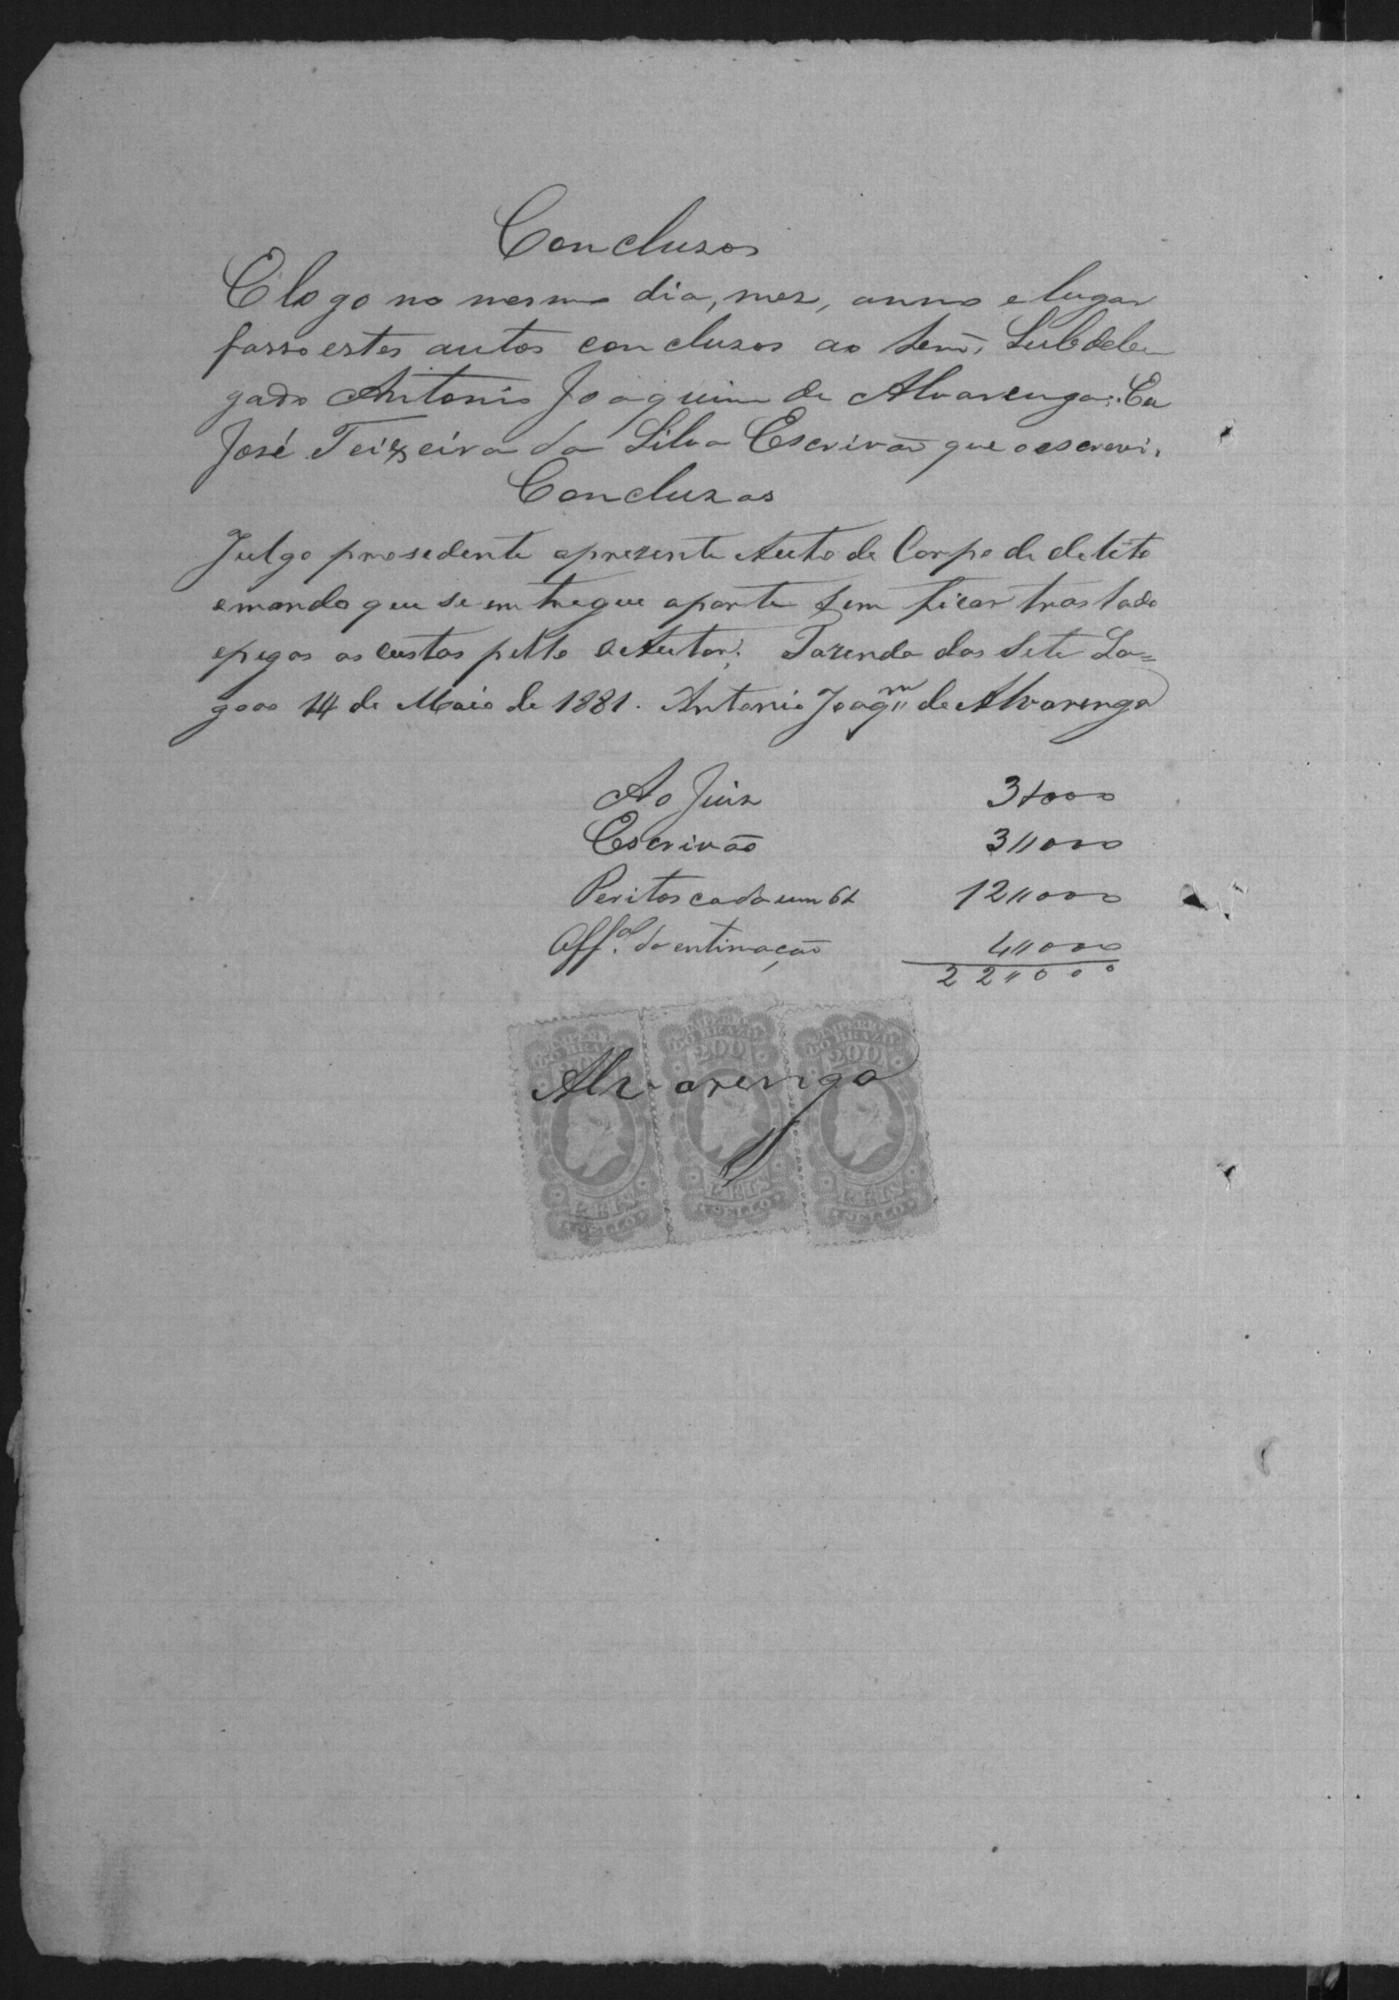 Concluzos
E logo no mesmo dia, mez, anno e lugar
fasso estes autos concluzos ao Senr. Subdele
gado Antonio Joaquim de Alvarenga. Eu
José Teixeira da Silva Escrivão que o escrevi.
Concluzos
Julgo prosedente aprezente Auto de Corpo de delito
emando que se entregue aparte sem ficar traslado
epagas as custas pello Autor. Fazenda das Sete La=
goas 14 de Maio de 1881. Antonio Joaqm de Alvarenga
Ao Juiz 3$000
Escrivão 3"000
Peritos cada um 6$ 12"000
Offal. da entimação 4"000
22"000
IMPERIO DO BRAZIL 200 REIS SELLO
IMPERIO DO BRAZIL 200 REIS SELLO
IMPERIO DO BRAZIL 200 REIS SELLO
Alvarenga